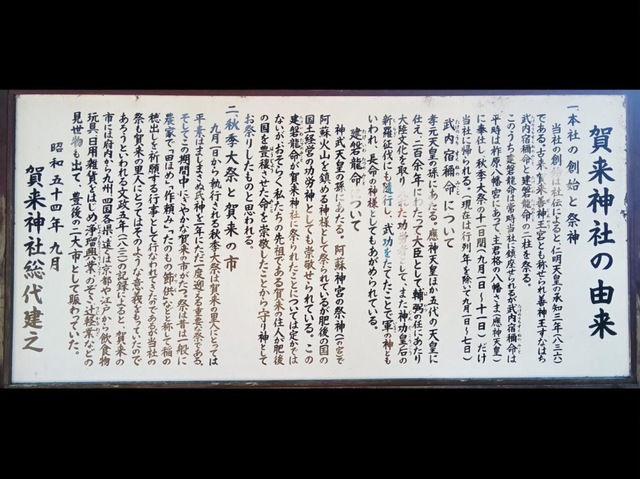 賀来神社の由来
一本社の創始と祭神
当社の創始は社伝によると仁明天皇の承和三年(八三六)
である。古来賀来善神王宮とも称せられ善神王すなはち
武内宿禰命と建磐龍命の二柱を祭る。
このうち建磐龍命は常時当社に鎮座せられるが武内宿禰命は
平時は柞原八幡宮にあって、主君格の八幡さま(應神天皇)
に奉仕し秋季大祭の十一日間(九月一日〜十一日)だけ
当社に帰られる。(現在は行列年を除いて九月一日〜七日)
武内宿禰命について
孝元天皇の孫にあたる。應神天皇ほか五代の天皇に
仕え、二百余年にわたって大臣として輔弼の任にあたり
大陸文化を取り
た功労者として、また神功皇后の
新羅征伐にも随行し、武功をたてたことで軍の神とも
いわれ、長命の神様としてもあがめられている。
建磐龍命について
神武天皇の孫にあたる。阿蘇神宮の祭神
阿蘇火山を鎮める神様として祭られているが肥後の国の
国土経営の功労神としても崇敬せられている。この
建磐龍命が賀来神社に祭られたことについては定かでは
ないが、おそらく私たちの先祖である賀来の住人が肥後
の国を豊穣させた命を崇敬したことから守り神として
お祭りしたものと思われる。
二秋季大祭と賀来の市
九月一日から執行される秋季大祭は賀来の里人にとっては
平素はすじまさぬ氏神を三年にただ一度迎える重要な祭である。
そしてこの期間中、にぎやかな賀来の市がたつ。祭は昔は一般に
農家で「田ほめ」、「作頼み」、「たのもの節供」などと称して稲の
穂出しを祈願する行事として行なわれてきたのであるが当社の
祭も賀来の里人にとってはそのような意義をもっていたので
あろうといわれる。文政五年(八二二)の記録によると、賀来の
市には府内から九州、四国各県、遠くは京都や江戸から飲食物
玩具、日用雑貨をはじめ浄瑠璃、
見世物も出て、豊後の二大市として賑わっていた。
昭和五十四年九月
賀来神社総代建之